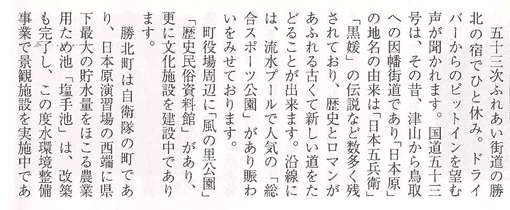 五十三次ふれあい街道の勝
北の宿でひと休み。ドライ
バーからのピットインを望む
声が聞かれます。国道五十三
号は、その昔、津山から鳥取
への因幡街道であり「日本原」
の地名の由来は「日本五兵衛」
「黒媛」の伝説など数多く残
されており、歴史とロマンが
あふれる古くて新しい道をた
どることが出来ます。沿線に
は、流水プールで人気の「総
合スポーツ公園」があり賑わ
いをみせております。
　町役場周辺に「風の里公園」
「歴史民俗資料館」があり、
更に文化施設を建設中であり
ます。
　勝北町は自衛隊の町であ
り、日本原演習場の西端に県
下最大の貯水量をほこる農業
用ため池「塩手池」は、改築
も完了し、この度水環境整備
事業で景観施設を実施中であ